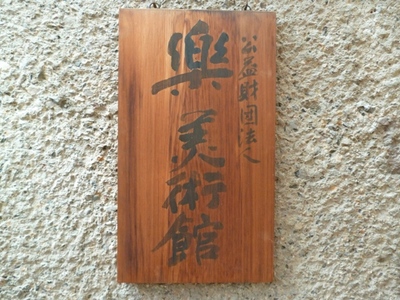 公益財団法人
樂美術館